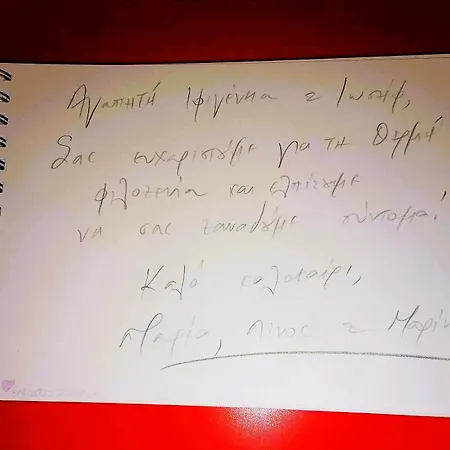 Αγαπητή Ιφιγένεια & Ιωσήφ,
Σας ευχαριστούμε για τη θερμή
φιλοξενία και ελπίζουμε
να σας ξαναδούμε σύντομα!
Καλό καλοκαίρι,
Μαρία, Λίνος & Μαρίν